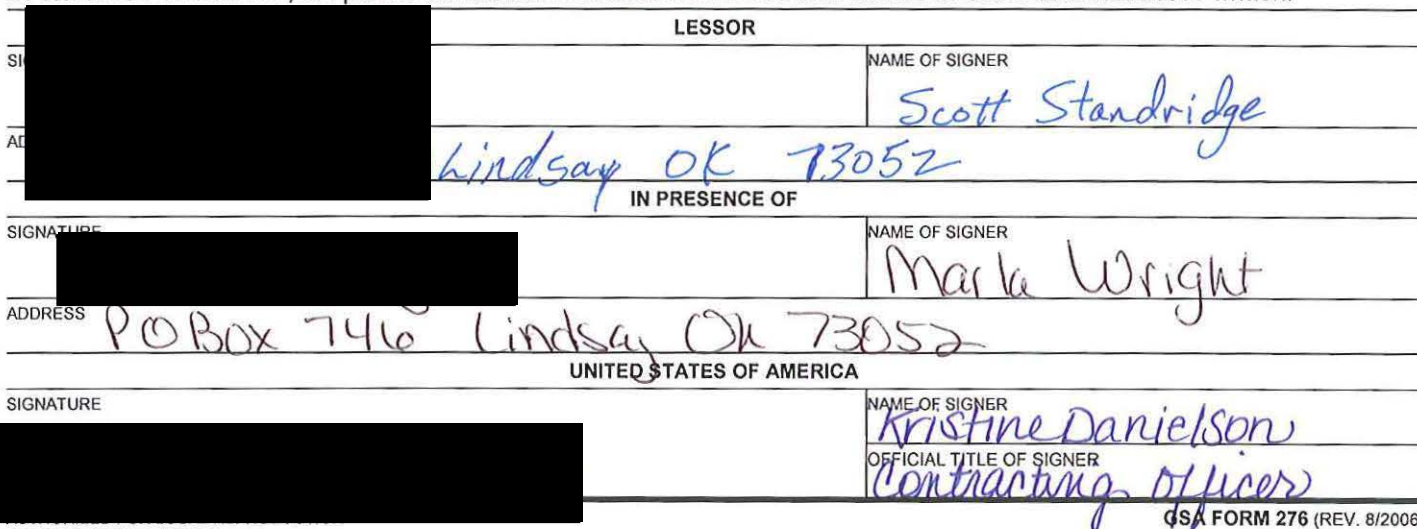 LESSOR
NAME OF SIGNER
Scott Standridge
Lindsay OK 73052
IN PRESENCE OF
SIGNATURE
NAME OF SIGNER
Marla Wright
ADDRESS PO Box 746 Lindsay Ok 73052
UNITED STATES OF AMERICA
SIGNATURE
NAME OF SIGNER
Kristine Danielson
OFFICIAL TITLE OF SIGNER
Contracting Officer
GSA FORM 276 (REV. 8/2006